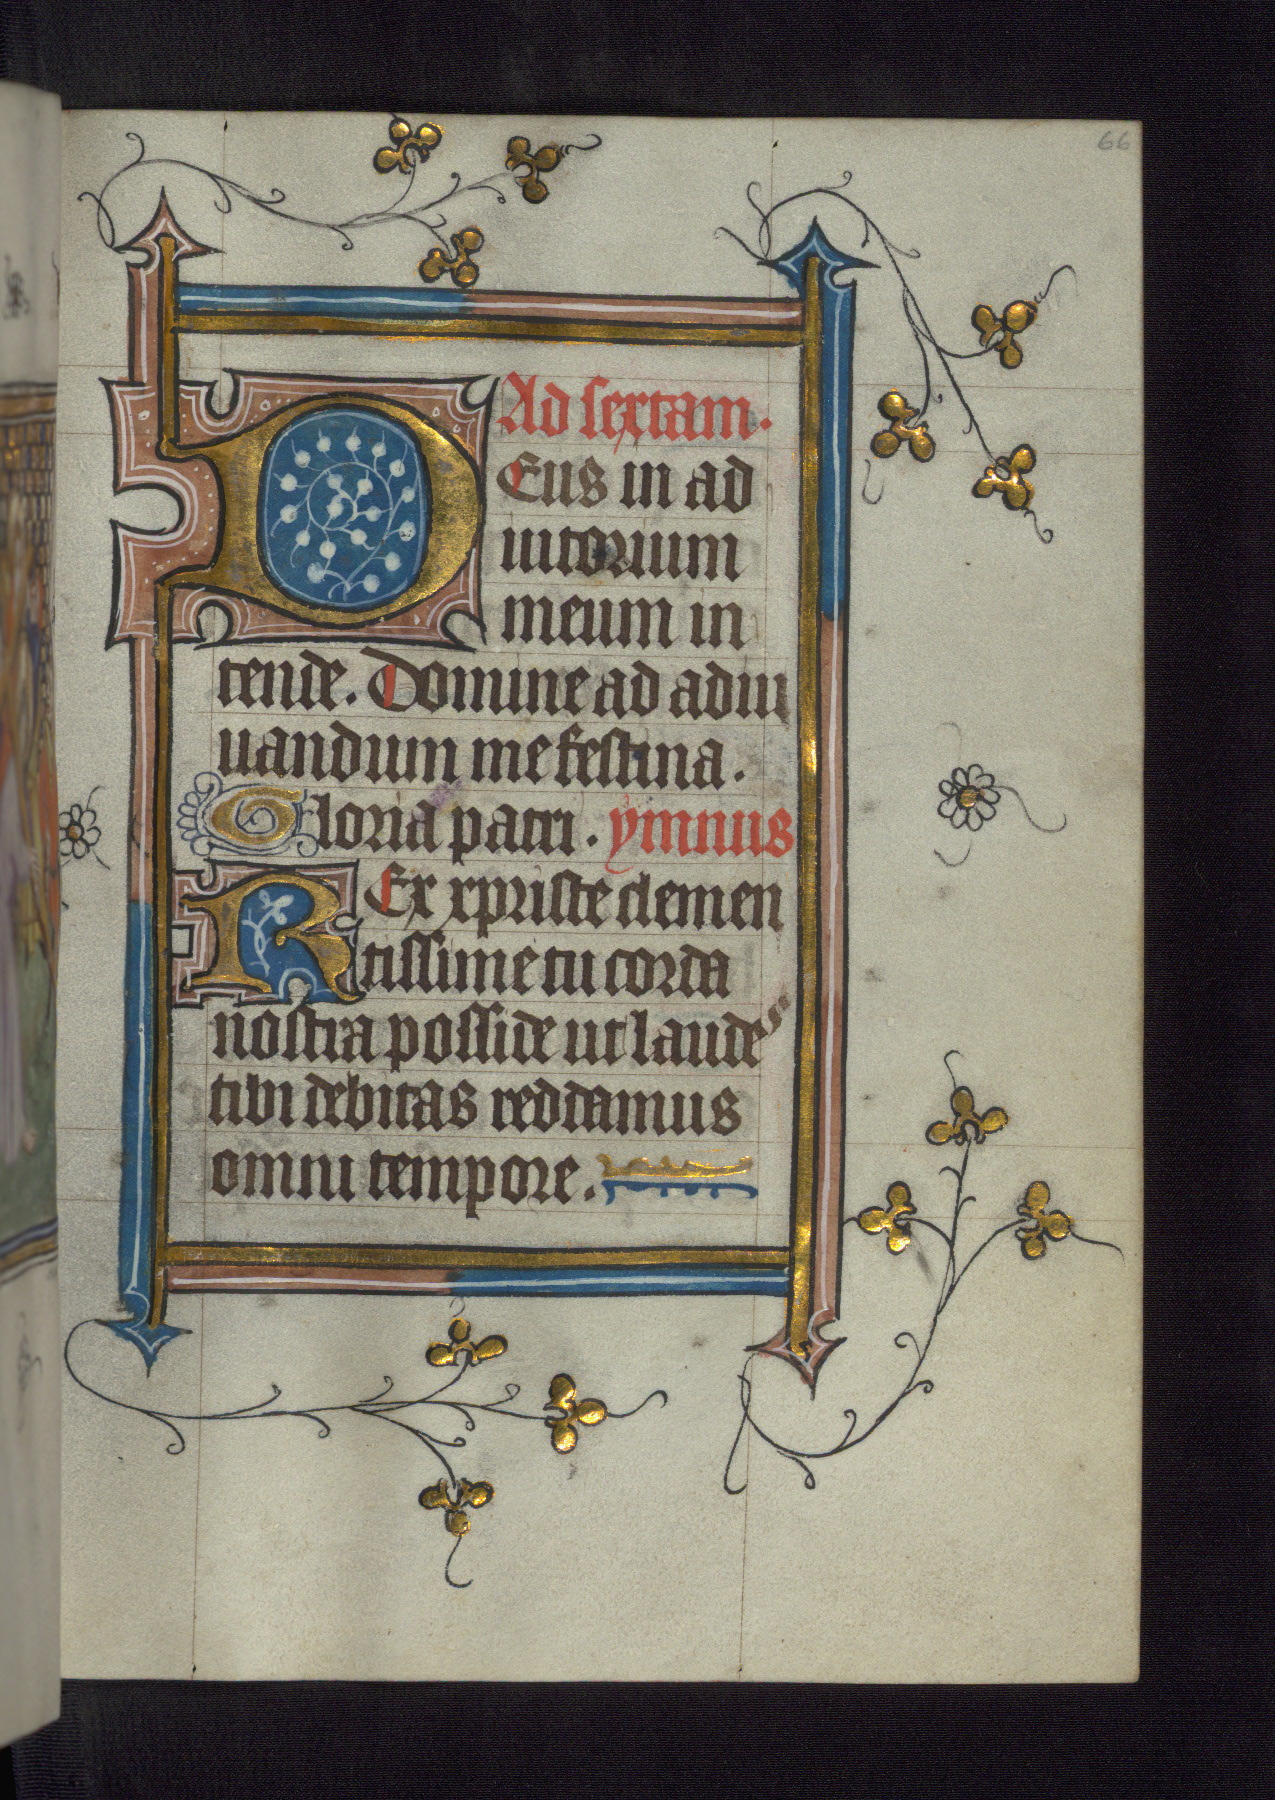 66
Ad sextam.
DEus in ad
iutorium
meum in
tende. Domine ad adiu
uandum me festina.
Gloria patri. ymnus
REx xpriste clemen
tissime tu corda
nostra posside ut laudes
tibi debitas reddamus
omni tempore.